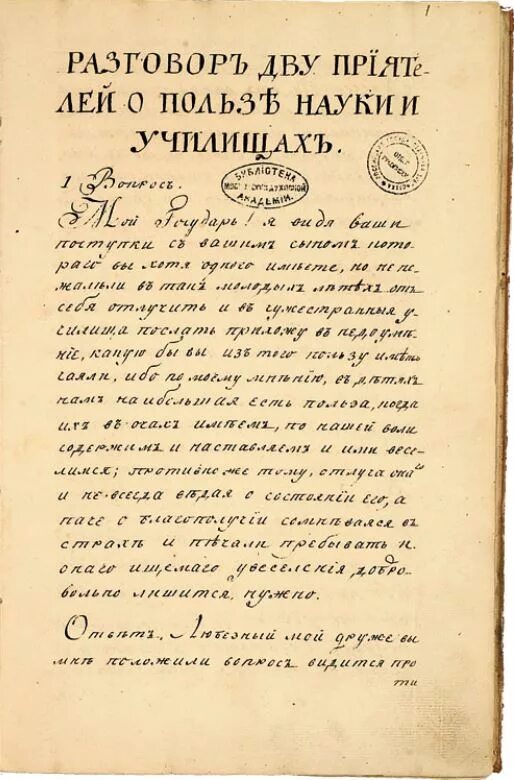 1
РАЗГОВОРЪ ДВУ ПРІЯТЕ-
ЛЕЙ О ПОЛЬЗѢ НАУКИ И
УЧИЛИЩАХЪ.
БИБЛІОТЕКА
АКАДЕМІИ.
1 Вопросъ.
Мой Государь! я видя ваши
поступки съ вашимъ сыномъ кото-
раго вы хотя одного имѣете, но не по-
жалѣли въ такъ молодыхъ лѣтѣхъ отъ
себя отлучить и въ чужестранныя у-
чилища послать прихожу въ недоумѣ-
ніе, какую бы вы изъ того пользу имѣть
чаяли, ибо по моему мнѣнію, въ дѣтяхъ
намъ наибольшая есть польза, когда
ихъ въ очахъ имѣемъ, по нашей воли
содержимъ и наставляемъ и ими весе-
лимся; противно же тому, отлуча онаго
и не всегда вѣдая о состояніи его, а
паче о благополучіи сомнѣваяся въ
страхѣ и печали пребывать и
онаго ищемаго увеселенія, добро-
вольно лишится, нужно.
Отвѣтъ. Любезный мой друже вы
мнѣ положили вопросъ видится про
ти